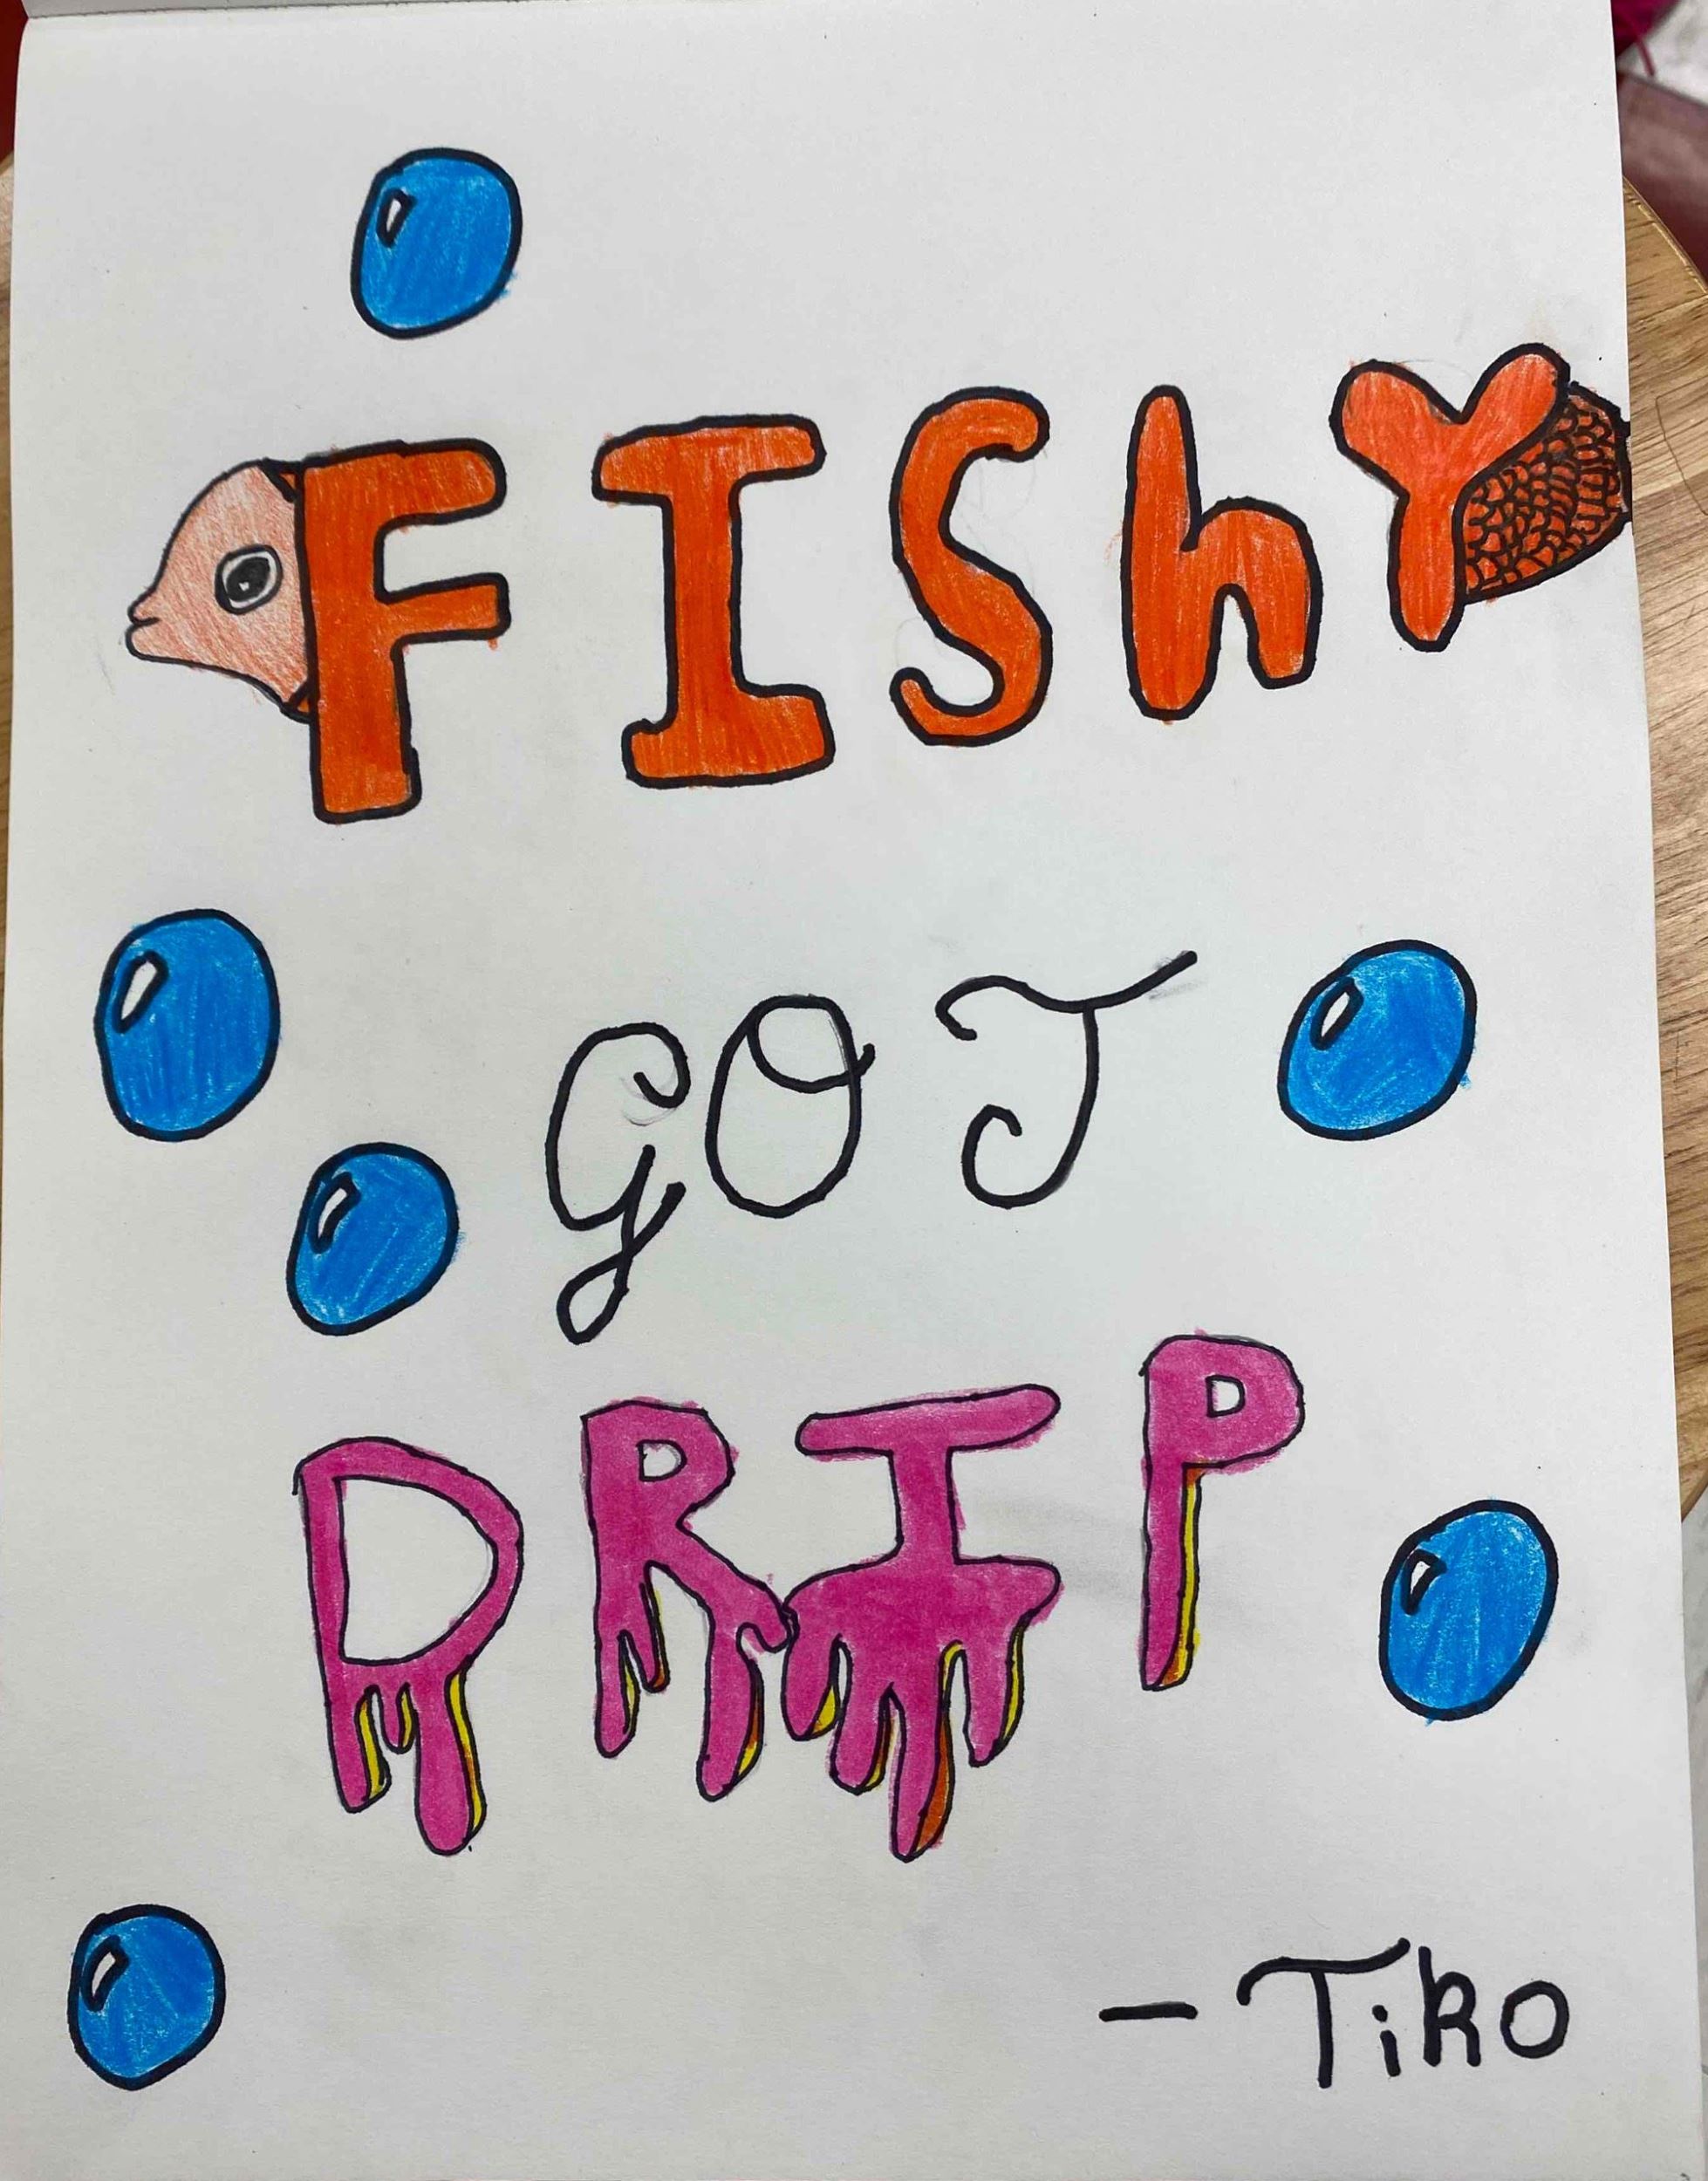 FIShY
GOT
DRIP
- Tiko